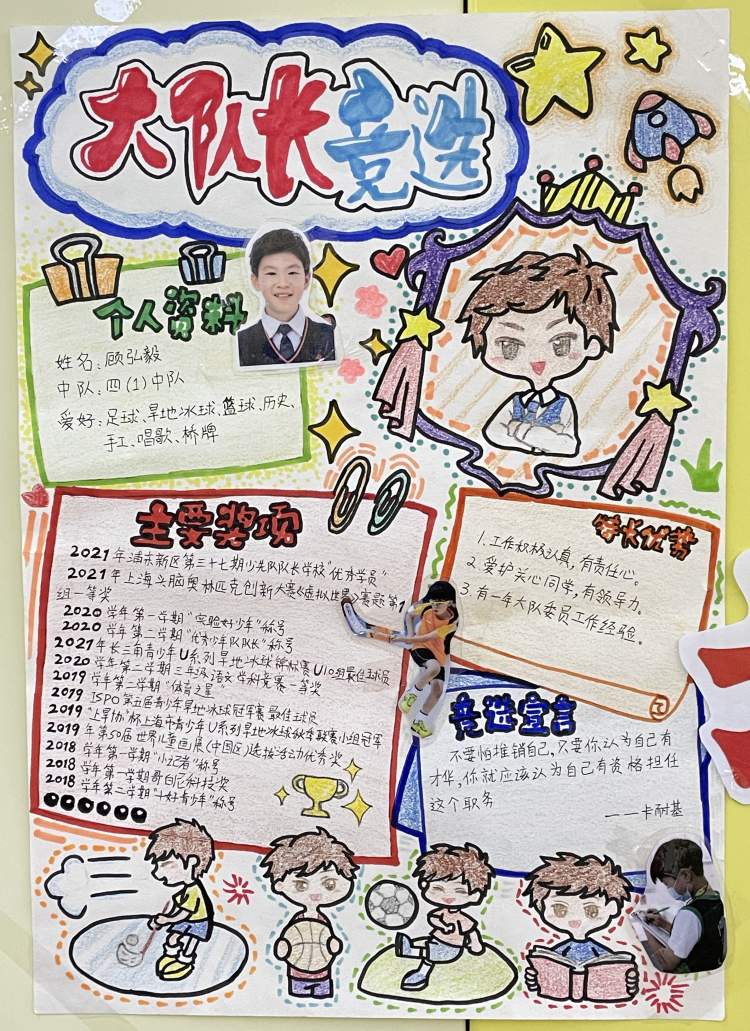 大队长竞选
个人资料
姓名:顾弘毅
中队:四(1)中队
爱好:足球、旱地冰球、篮球、历史、
手工、唱歌、桥牌
主要奖项
2021年浦东新区第三十七期少先队队长学校"优秀学员"
2021年上海头脑奥林匹克创新大赛《虚拟世界》赛题第1
组一等奖
2020学年第一学期"实验好少年"称号
2020学年第二学期"优秀少年队队长"称号
2021年长三角青少年U系列旱地冰球锦标赛U10组最佳球员
2020学年第二学期三年级语文学科竞赛一等奖
2019学年第二学期"体育之星"
2019 ISPO第五届青少年旱地冰球冠军赛最佳球员
2019"上旱协"杯上海市青少年U系列旱地冰球秋季联赛小组冠军
2019年第50届世界儿童画展(中国区)选拔活动优秀奖
2018学年第一学期"小记者"称号
2018学年第一学期哥白尼科技奖
2018学年第二学期"十好青少年"称号
特长优势
1.工作积极认真,有责任心。
2.爱护关心同学,有领导力。
3.有一年大队委员工作经验。
竞选宣言
不要怕推销自己,只要你认为自己有
才华,你就应该认为自己有资格担任
这个职务
——卡耐基